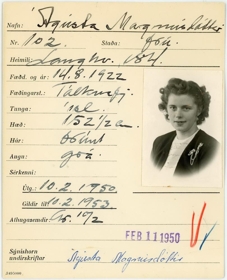 Nafn: Ágústa Magnúsdóttir
Nr. 102. Staða: frú.
Heimili: Langhv. 184.
Fædd. og ár: 14.8.1922
Fæðingarst.: Tálknafj.
Tunga: ísl.
Hæð: 152½ a.
Hár:
Augu: grá.
Sérkenni:
Útg.: 10.2.1950.
Gildir til 10.2.1953.
Athugasemdir 10/2
FEB 11 1950
Sýnishorn
undirskriftar Ágústa Magnúsdóttir